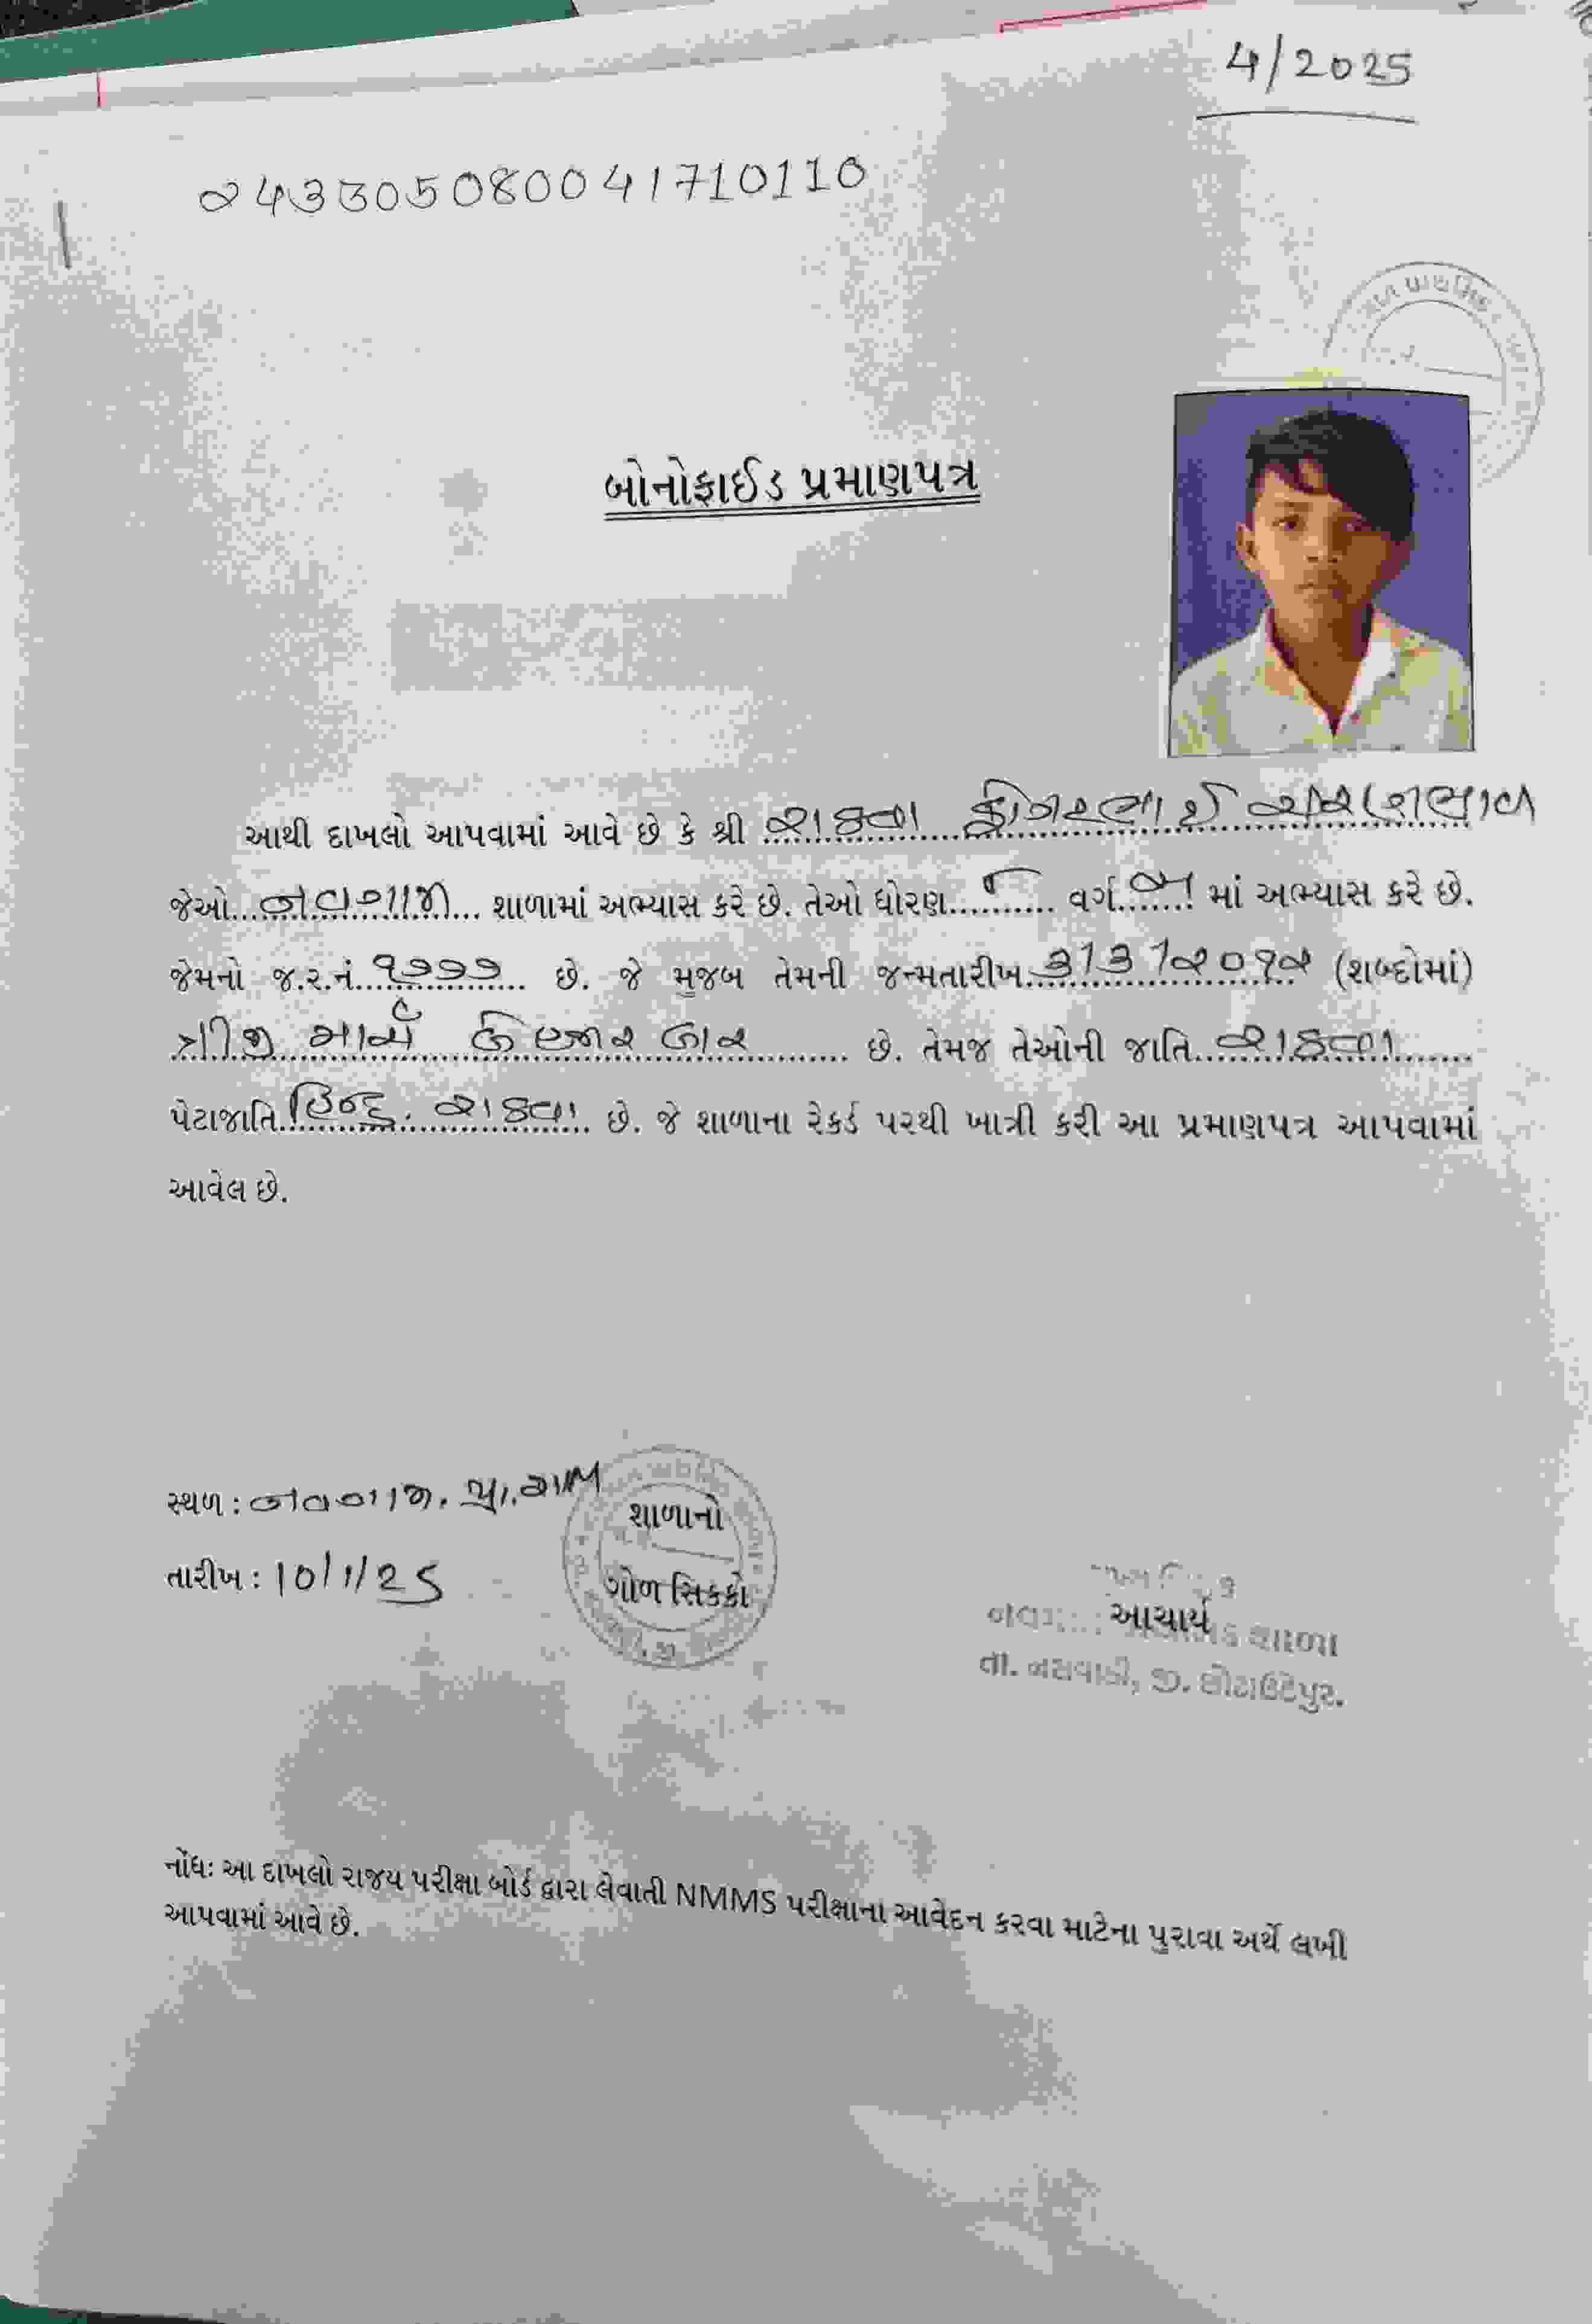 4/2025
૨43305080041710110
બોનોફાઈડ પ્રમાણપત્ર
આથી દાખલો આપવામાં આવે છે કે શ્રી રાઠવા
જેઓ નવગામ શાળામાં અભ્યાસ કરે છે. તેઓ ધોરણ ૮ વર્ગ અ માં અભ્યાસ કરે છે.
જેમનો જ.ર.નં. ૧૭૭૭ છે. જે મુજબ તેમની જન્મતારીખ 3/3/૨૦૧૨ (શબ્દોમાં)
ત્રીજી માર્ચ બે હજાર બાર છે. તેમજ તેઓની જાતિ રાઠવા
પેટાજાતિ હિન્દુ. રાઠવા છે. જે શાળાના રેકર્ડ પરથી ખાત્રી કરી આ પ્રમાણપત્ર આપવામાં
આવેલ છે.
સ્થળ : નવગામ. પ્રા.શાળા
તારીખ : 10/1/25
શાળાનો
ગોળ સિક્કો
આચાર્ય
શાળા
તા. નસવાડી, જી. છોટાઉદેપુર.
નોંધઃ આ દાખલો રાજય પરીક્ષા બોર્ડ દ્વારા લેવાતી NMMS પરીક્ષાના આવેદન કરવા માટેના પુરાવા અર્થે લખી
આપવામાં આવે છે.